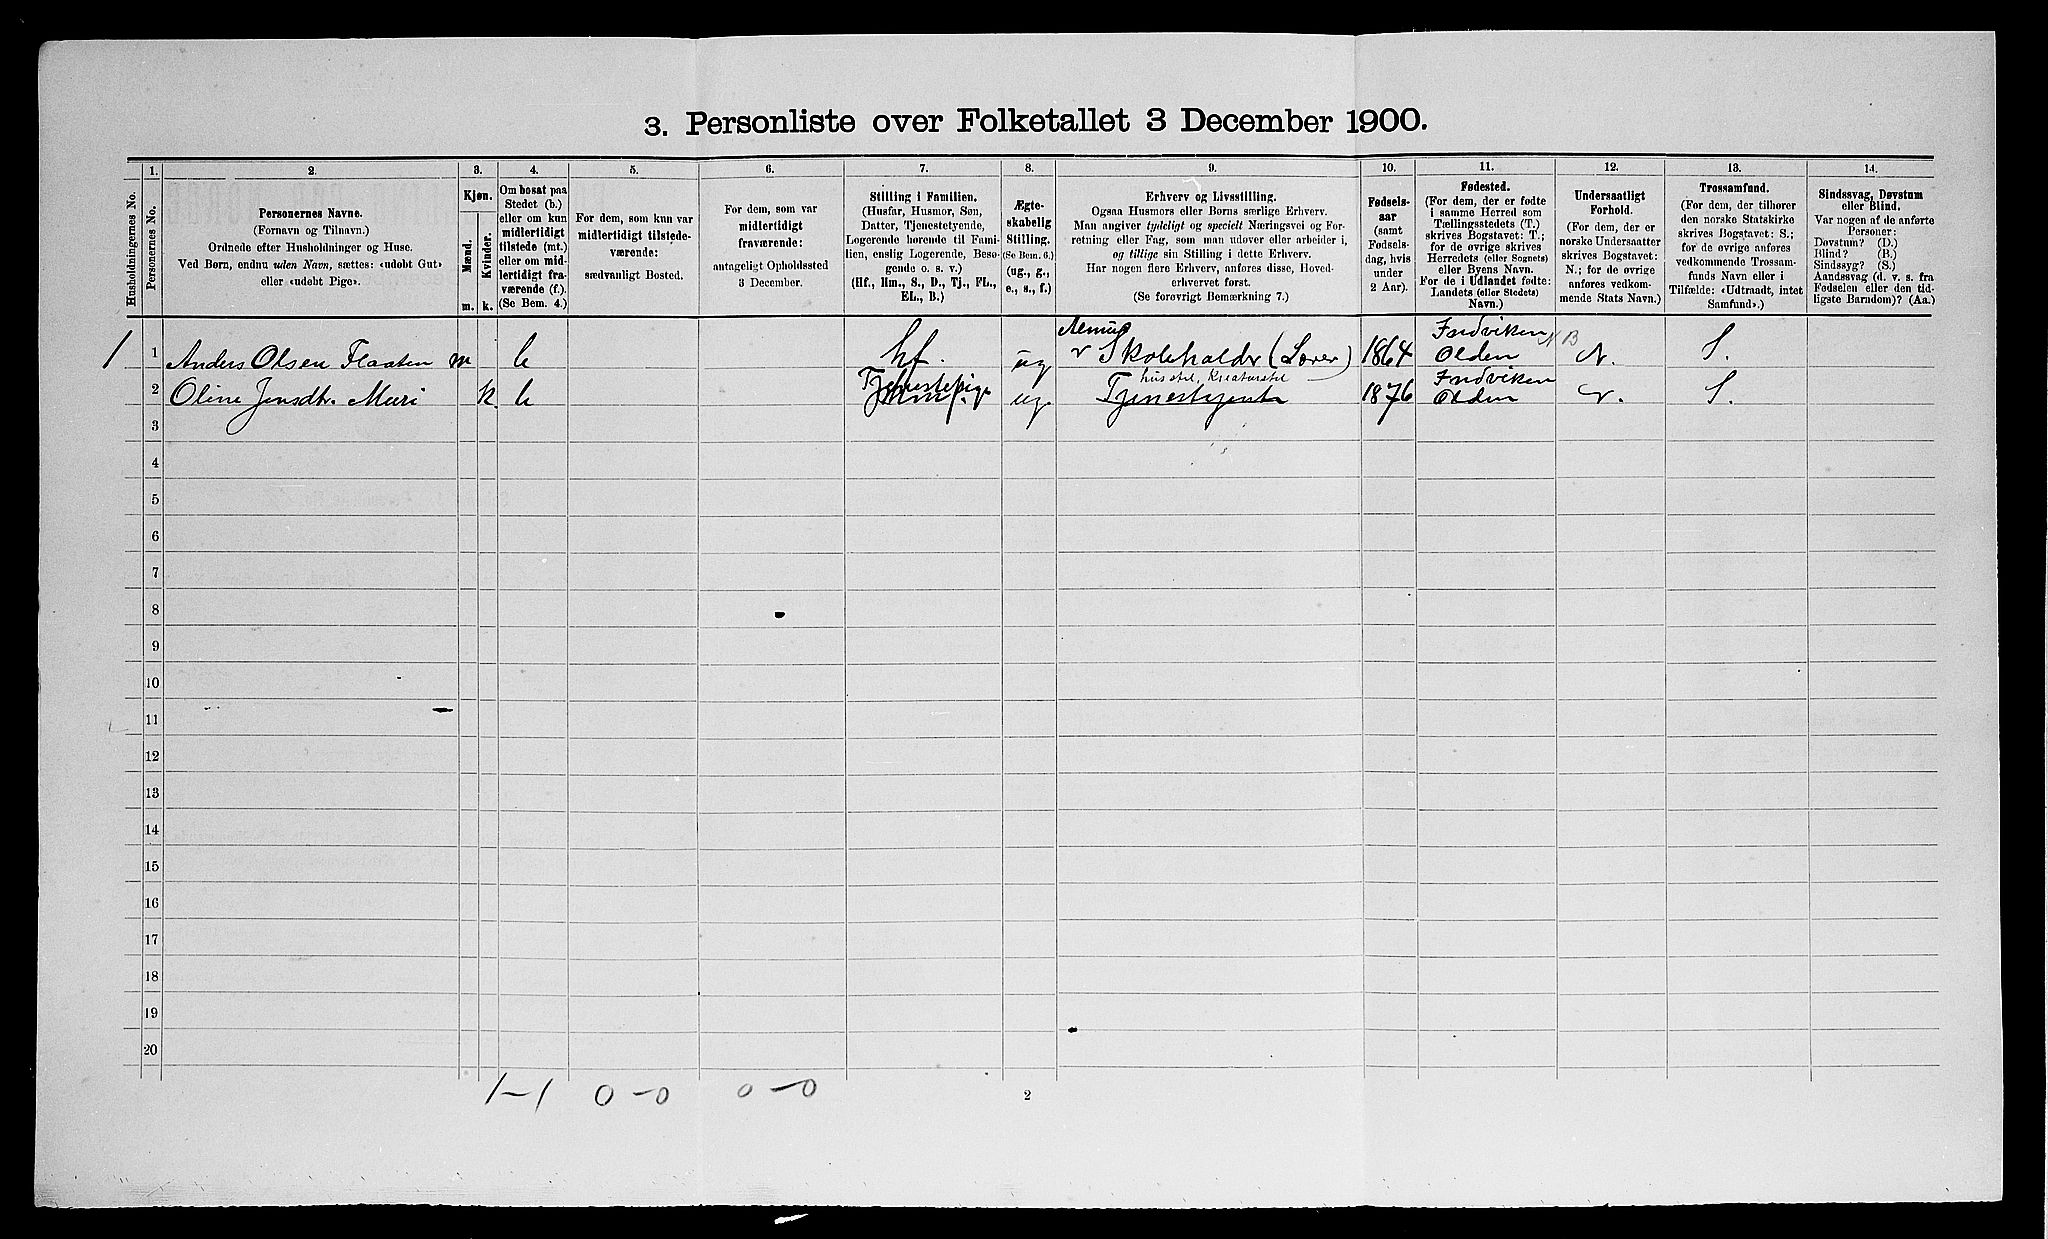 3. Personliste over Folketallet 3 December 1900.
Husholdningernes No.
1.
Personernes No.
2.
Personernes Navne.
(Fornavn og Tilnavn.)
Ordnede efter Husholdninger og Huse.
Ved Børn, endnu uden Navn, sættes: «udøbt Gut»
eller «udøbt Pige».
3.
Kjøn.
Mænd.
Kvinder.
m. k.
4.
Om bosat paa
Stedet (b.)
eller om kun
midlertidigt
tilstede (mt.)
eller om mid-
lertidigt fra-
værende (f.).
(Se Bem. 4.)
5.
For dem, som kun var
midlertidigt tilstede-
værende:
sædvanligt Bosted.
6.
For dem, som var
midlertidigt
fraværende:
antageligt Opholdssted
3 December.
7.
Stilling i Familien.
(Husfar, Husmor, Søn,
Datter, Tjenestetyende,
Logerende hørende til Fami-
lien, enslig Logerende, Besø-
gende o. s. v.)
(Hf., Hm., S., D., Tj., FL.,
EL., B.)
8.
Ægte-
skabelig
Stilling.
(Se Bem. 6.)
(ug., g.,
e., s., f.)
9.
Erhverv og Livsstilling.
Ogsaa Husmors eller Børns særlige Erhverv.
Man angiver tydeligt og specielt Næringsvei og For-
retning eller Fag, som man udøver eller arbeider i,
og tillige sin Stilling i dette Erhverv.
Har nogen flere Erhverv, anføres disse, Hoved-
erhvervet først.
(Se forøvrigt Bemærkning 7.)
10.
Fødsels-
aar
(samt
Fødsels-
dag, hvis
under
2 Aar).
11.
Fødested.
(For dem, der er fødte
i samme Herred som
Tællingsstedets (T.)
skrives Bogstavet: T.;
for de øvrige skrives
Herredets (eller Sognets)
eller Byens Navn.
For de i Udlandet fødte:
Landets (eller Stedets)
Navn.)
12.
Undersaatligt
Forhold.
(For dem, der er
norske Undersaatter
skrives Bogstavet:
N.; for de øvrige
anføres vedkom-
mende Stats Navn.)
13.
Trossamfund.
(For dem, der tilhører
den norske Statskirke
skrives Bogstavet: S.;
for de øvrige anføres
vedkommende Trossam-
funds Navn eller i
Tilfælde: «Udtraadt, intet
Samfund».)
14.
Sindssvag, Døvstum
eller Blind.
Var nogen af de anførte
Personer:
Døvstum? (D.)
Blind? (B.)
Sindssyg? (S.)
Aandssvag (d. v. s. fra
Fødselen eller den tid-
ligste Barndom)? (Aa.)
1 1 Anders Olsen Flaaten m b hf. ug Skoleholder (Lærer) 1864 Indviken Olden N. S.
2 Oline Jensdtr. Muri k. b Tjenestepige ug. Tjenestejente 1876 Indviken Olden N. S.
3
4
5
6
7
8
9
10
11
12
13
14
15
16
17
18
19
20
1–1 0–0 0–0
2